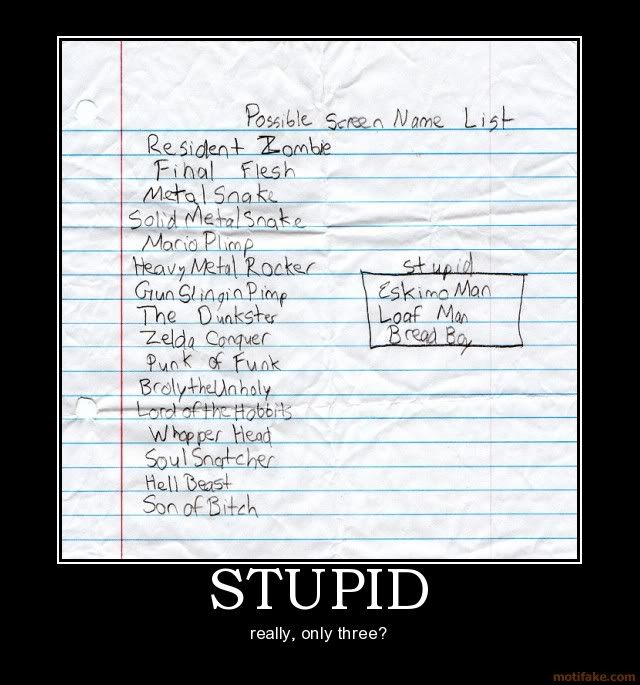 Possible Screen Name List
Resident Zombie
Final Flesh
Metal Snake
Solid Metal Snake
Mario Plimp
Heavy Metal Rocker
Gun Slingin Pimp
The Dunkster
Zelda Conquer
Punk of Funk
Broly the Unholy
Lord of the Hobbits
Whopper Head
Soul Snatcher
Hell Beast
Son of Bitch
Stupid
Eskimo Man
Loaf Man
Bread Boy
STUPID
really, only three?
motifake.com